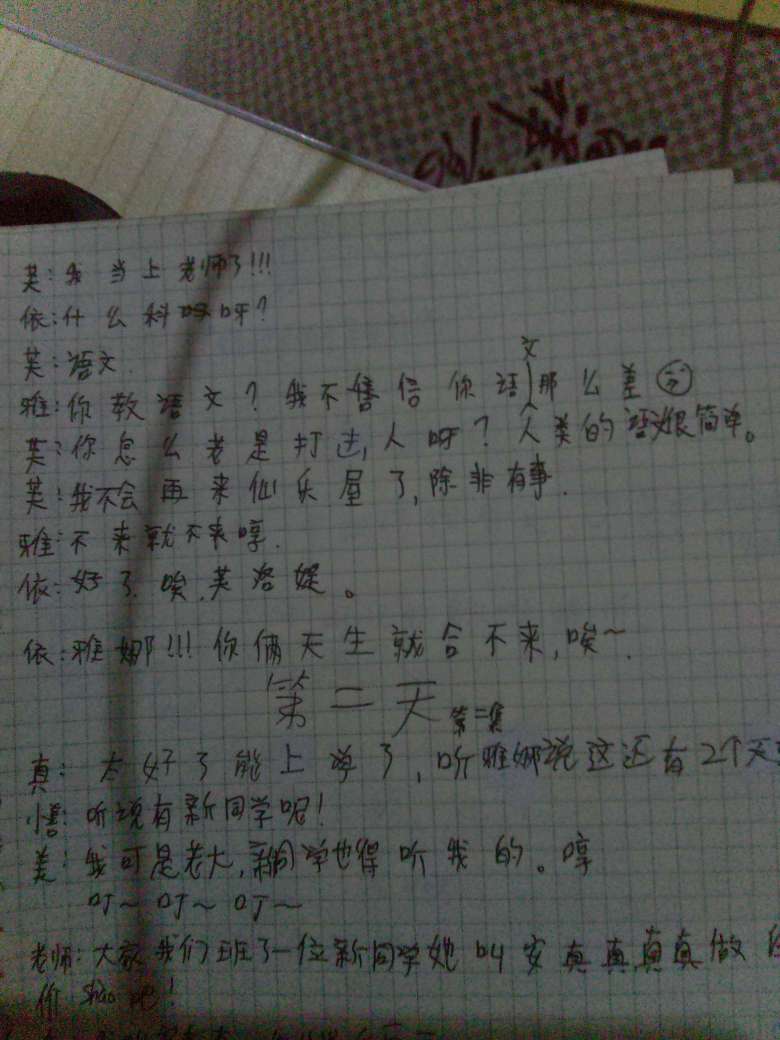 芙:我当上老师了!!!
依:什么科呀?
芙:语文.
雅:你教语文?我不信你语文那么差
芙:你怎么老是打击人呀?人类的语文很简单。
芙:我不会再来仙乐屋了,除非有事.
雅:不来就不来哼.
依:好了.唉.芙洛媞。
依:雅娜!!!你俩天生就合不来,唉~.
第二天 第二集
真:太好了能上学了,听雅娜说这还有2个天
听说有新同学呢!
美:我可是老大,新同学也得听我的。哼
叮~叮~叮~
老师:大家我们班了一位新同学她叫安真真真真做
价shào吧!